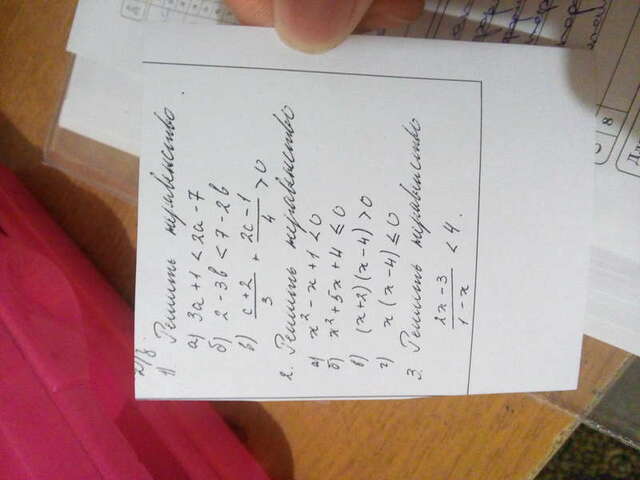 Д/з.
1) Решить неравенство.
а) 3a + 1 < 2a - 7
б) 2 - 3b < 7 - 2b
в) (c+2)/3 + (2c-1)/4 > 0
2. Решить неравенство
а) x² - x + 1 < 0
б) x² + 5x + 4 ≤ 0
в) (x+2)(x-4) > 0
г) x(x-4) ≤ 0
3. Решить неравенство
(2x-3)/(1-x) < 4.
8